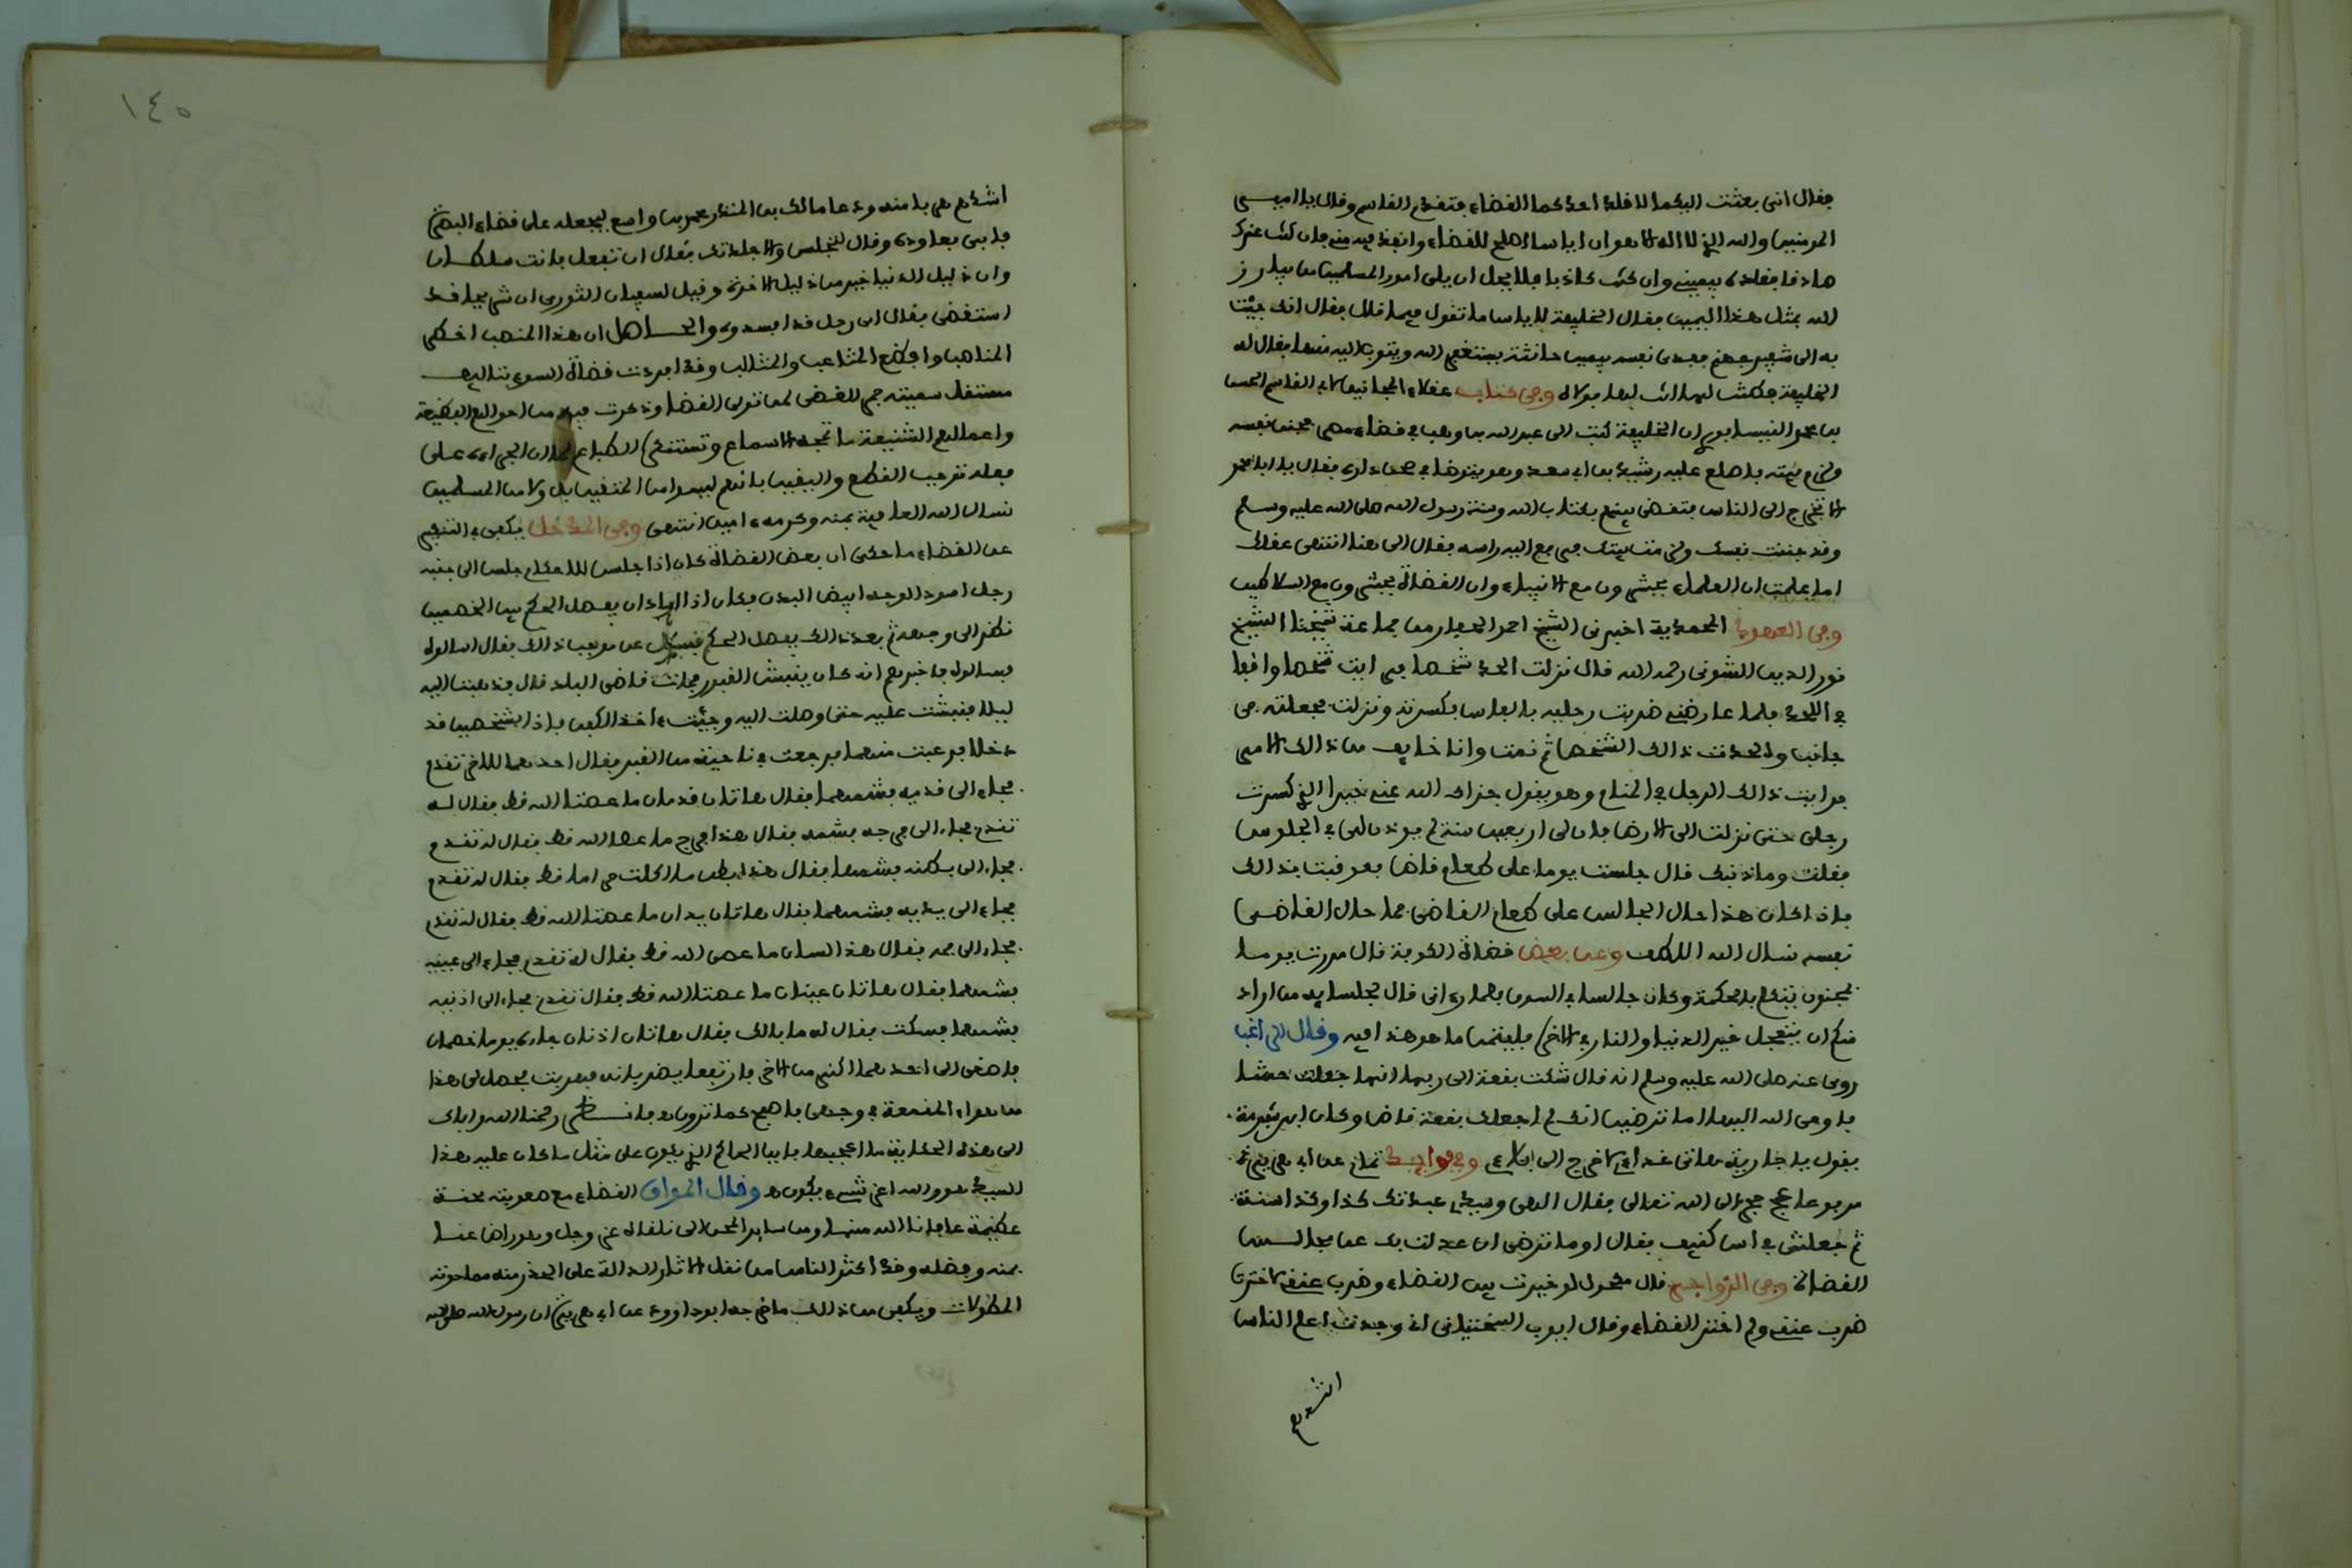 فقال انى بعثت اليكما لاقلد احدكما القضاء فتقدم القاسم وقال يا امير
المومنين والله الذى لا اله الا هو ان اياسا اصلح للقضاء وانفذ فيه منى فان كنت عندك
صادقا فقلده بيمينى وان كنت كاذبا فلا يحل ان يلى امور المسلمين من يبارز
الله بمثل هذا اليمين فقال الخليفة لاياس ما تقول فيما قال فقال انك جئت
به الى شفير جهنم ففدى نفسه بيمين حانثة يستغفر الله ويتوب اليه منها فقال له
الخليفة فطنت لها انت لها يولاه وفى كتاب عقلاء المجانين لابى القاسم الحسن
بن محمد النيسابورى ان الخليفة كتب الى عبد الله بن وهب فى قضاء مصر فجنن نفسه
ولزم بيته فاطلع عليه رشيد بن ابى سعد وهو يتوضا فى صحن داره فقال يا ابا محمد
الا تخرج الى الناس فتقضى بينهم بكتاب الله وسنة رسول الله صلى الله عليه وسلم
وقد جننت نفسك ولزمت بيتك فرفع اليه راسه فقال الى هنا انتهى عقلك
اما علمت ان العلماء يحشرون مع الانبياء وان القضاة يحشرون مع السلاطين
وفى العهود المحمدية اخبرنى الشيخ احمد الحفار من جماعة شيخنا الشيخ
نور الدين الشونى رحمه الله قال نزلت الحد شخصا فرايت شخصا واقفا
فى اللحد فلما عارضنى ضربت رجليه بالفاس فكسرته ونزلت فجعلته فى
جانب والحدت ذالك الشخص ثم نمت وانا خايف من ذالك الامر
فرايت ذالك الرجل فى المنام وهو يقول جزاك الله عنى خيرا الذى كسرت
رجلى حتى نزلت الى الارض فان لى اربعين سنة لم يوذن لى فى الجلوس
فقلت وما ذنبك قال جلست يوما على طعام قاض فعوقبت بذالك
فاذا كان هذا حال الجالس على طعام القاضى فما حال القاضى
نفسه نسال الله اللطف وعن بعض قضاة الكوفة قال مررت يوما
بمجنون يتكلم بالحكمة وكان جالسا فى السوق فلما رءانى قال لجلسايه من اراد
منكم ان يتعجل خير الدنيا والنار فى الاخرة فليتمن ما هو هذا فيه وقال الراغب
روى عنه صلى الله عليه وسلم انه قال شكت بقعة الى ربها انها جعلت حشا
فاوحى الله اليها اما ترضين انك لم اجعلك بقعة قاض وكان ابن شبرمة
يقول يا جارية هاتى غداءى لاخرج الى بلاءى وفى فوايد تمام عن ابى هريرة
مرفوعا عج حجر الى الله تعالى فقال الاهى وسيدى عبدتك كذا وكذا سنة
ثم جعلتنى فى اس كنيف فقال اوما ترضى ان عدلت بك عن مجالس
القضاة وفى الزواجر قال مكحول لو خيرت بين القضاء وضرب عنقى لاخترت
ضرب عنقى ولم اختر القضاء وقال ايوب السختيانى انى وجدت اعلم الناس
اشدهم
١٤٥
اشدهم هربا منه ودعا مالك بن المنذر محمد بن واسع ليجعله على قضاء البصرة
فابى فعاوده وقال لتجلس والا جلدتك فقال ان تفعل فانت سلطان
وان ذليل الدنيا خير من ذليل الاخرة وقيل لسفيان الثورى ان شريحا قد
استقضى فقال اى رجل قد افسدوه والحاصل ان هذا المنصب اخطر
المناصب وافظع المتاعب والمثالب وقد افردت قضاة السوء بتاليف
مستقل سميته جمر الغضى لمن تولى القضا وذكرت فيه من احوالهم الفظيعة
واعمالهم الشنيعة ما تمجه الاسماع وتستنكره الطباع لما ان الجراءة على
فعله توجب القطع واليقين بانهم ليسوا من المتقين بل ولا من المسلمين
نسال الله العافية بمنه وكرمه ءامين انتهى وفى المدخل يكفى فى التنفير
عن القضاء ما حكى ان بعض القضاة كان اذا جلس للاحكام جلس الى جنبه
رجل اسود الوجه ابيض البدن فكان اذا اراد ان يفصل الحكم بين الخصمين
نظر الى وجهه ثم بعد ذالك يفصل الحكم فسيل عن موجب ذالك فقال اسالوه
فسالوه فاخبرهم انه كان ينبش القبور فمات قاضى البلد قال فذهبت اليه
ليلا فنبشت عليه حتى وصلت اليه وجيت ءاخذ الكفن فاذا بشخصين قد
دخلا فرعبت منهما فرجعت فى ناحية من القبر فقال احدهما للاخر تقدم
فجاء الى قدميه فشمهما فقال هاتان قدمان ما عصتا الله قط فقال له
تقدم فجاء الى فرجه فشمه فقال هذا فرج ما عصا الله قط فقال له تقدم
فجاء الى بطنه فشمها فقال هذه بطن ما اكلت حراما قط فقال له تقدم
فجاء الى يديه فشمهما فقال هاتان يدان ما عصتا الله قط فقال له تقدم
فجاء الى فمه فقال هذا لسان ما عصى الله قط فقال له تقدم فجاء الى عينيه
فشمهما فقال هاتان عينان ما عصتا الله قط فقال تقدم فجاء الى اذنيه
فشمهما فسكت فقال له ما بالك فقال هاتان اذنان جاءه يوما خصمان
فاصغى الى احدهما اكثر من الاخر فارتفعا يضربانه فهربت فحصل لى هذا
من هواء المقمعة فى وجهى فاصبح كما ترون ه فانظر رحمنا الله واياك
الى هذه الحكاية ما اعجبها فاين الحاكم الذى يكون على مثل ما كان عليه هذا
السيد هو والله اعز شىء يكون ه وقال المواق القضاء مع صعوبته محنة
عظيمة عافانا الله منها ومن ساير المحن الى نلقاه عز وجل وهو راض عنا
بمنه وفضله وقد اكثر الناس من نقل الاثار الدالة على الحذر منه مما حوته
المطولات ويكفى من ذالك ما خرجه ابو داوود عن ابى هريرة ان رسول الله صلى الله